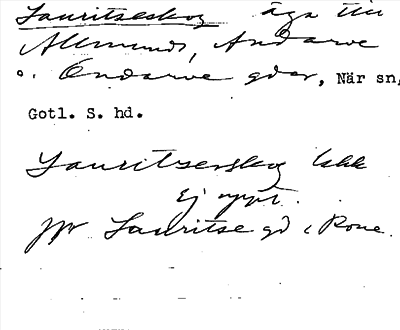 Lauritseskog äga till
Allmunds, Andarve
o. Öndarve gdar, När sn,
Gotl. S. hd.
Lauritseskog
Ej uppt.
jfr Lauritse gd i Rone.